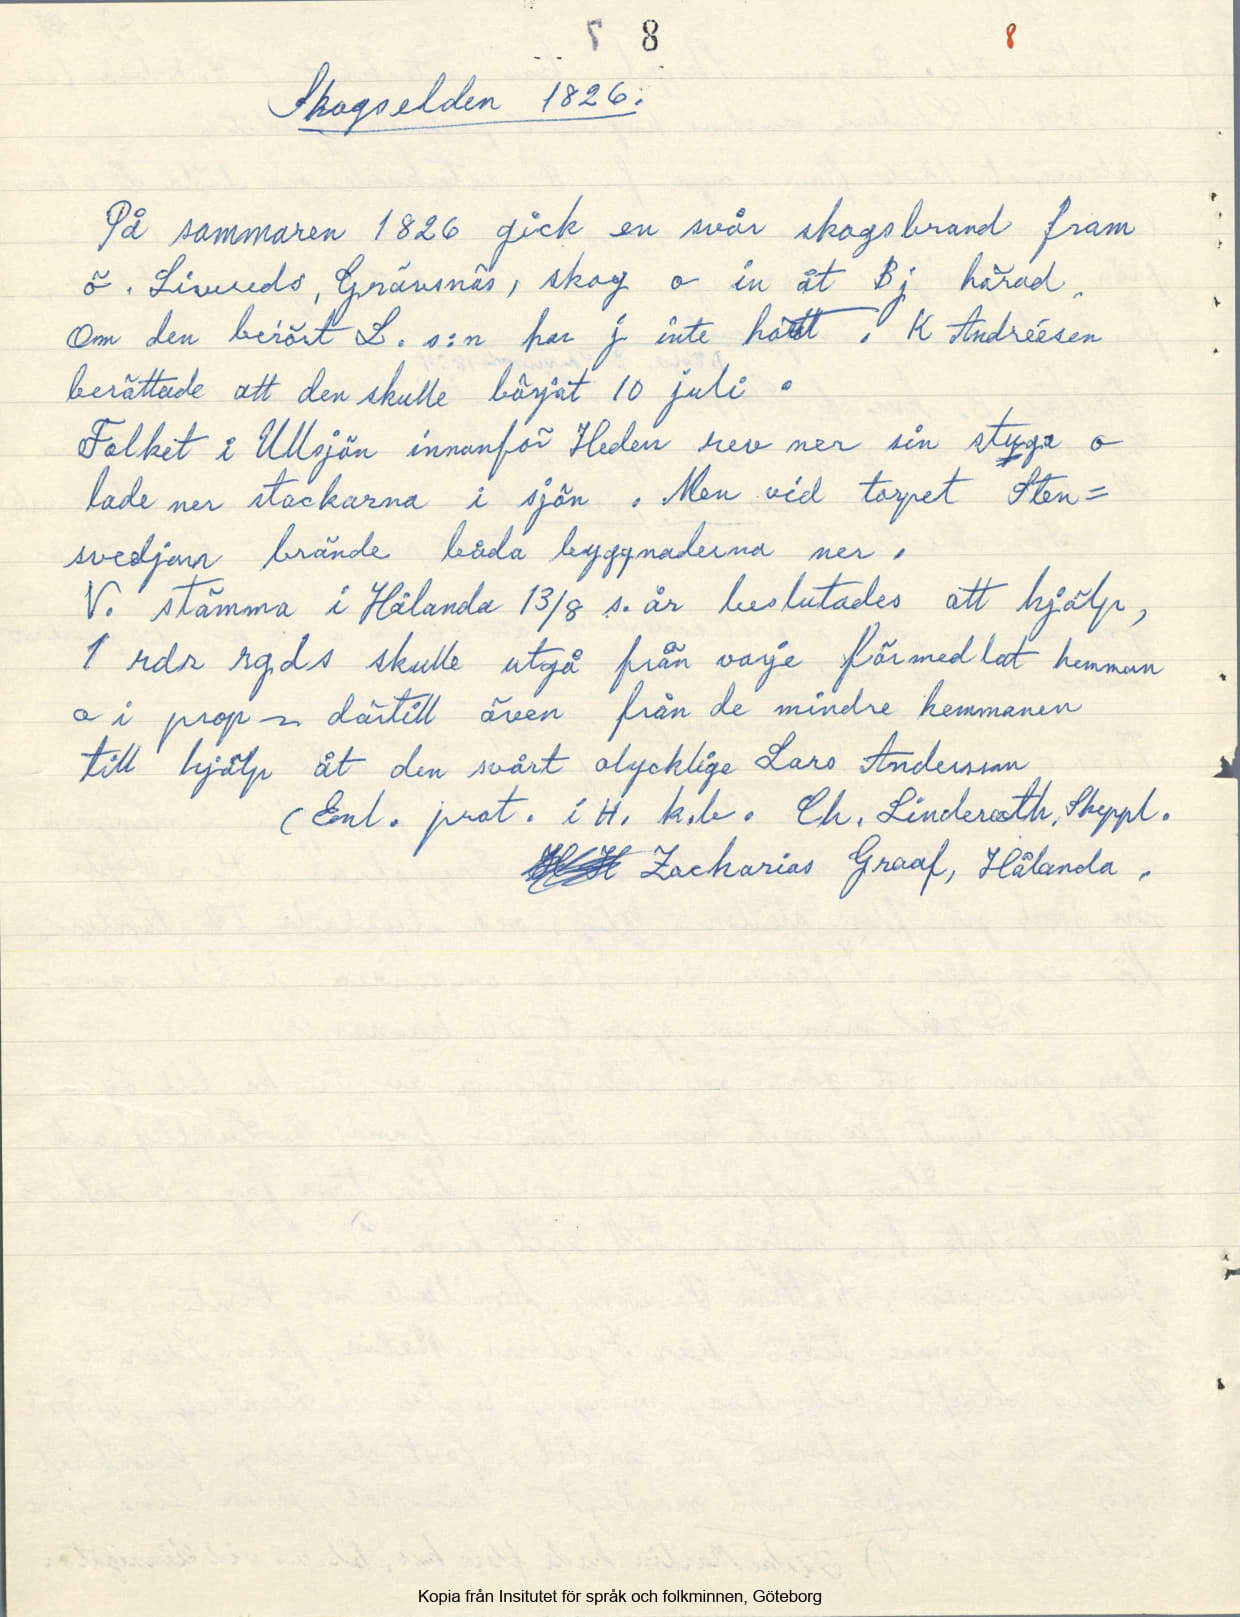 8 8
Skogselden 1826.
På sommaren 1826 gick en svår skogsbrand fram
ö. Livereds, Grävsnäs, skog o in åt Bj härad.
Om den berört L. s:n har j inte hört. K Andréesen
berättade att den skulle börjat 10 juli.
Folket i Ullsjön innanför Heden rev ner sin stuga o
lade ner stockarna i sjön. Men vid torpet Sten=
svedjan brände båda byggnaderna ner.
V. stämma i Hålanda 13/8 s. år beslutades att hjälp,
1 rdr rgds skulle utgå från varje förmedlat hemman
o i prop därtill även från de mindre hemmanen
till hjälp åt den svårt olycklige Lars Andersson
(Enl. prot. i H. k.b. Ch. Linderoth, Skeppl.
Zackarias Graaf, Hålanda.
Kopia från Insitutet för språk och folkminnen, Göteborg